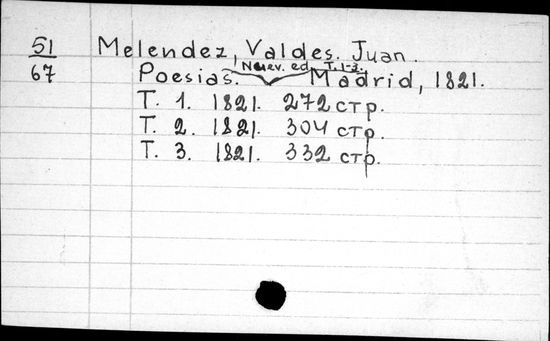 51 Melendez, Valdes. Juan.
67 Poesias. Nuev. ed. T. 1-3. Madrid, 1821.
T. 1. 1821. 272 стр.
T. 2. 1821. 304 стр.
T. 3. 1821. 332 стр.